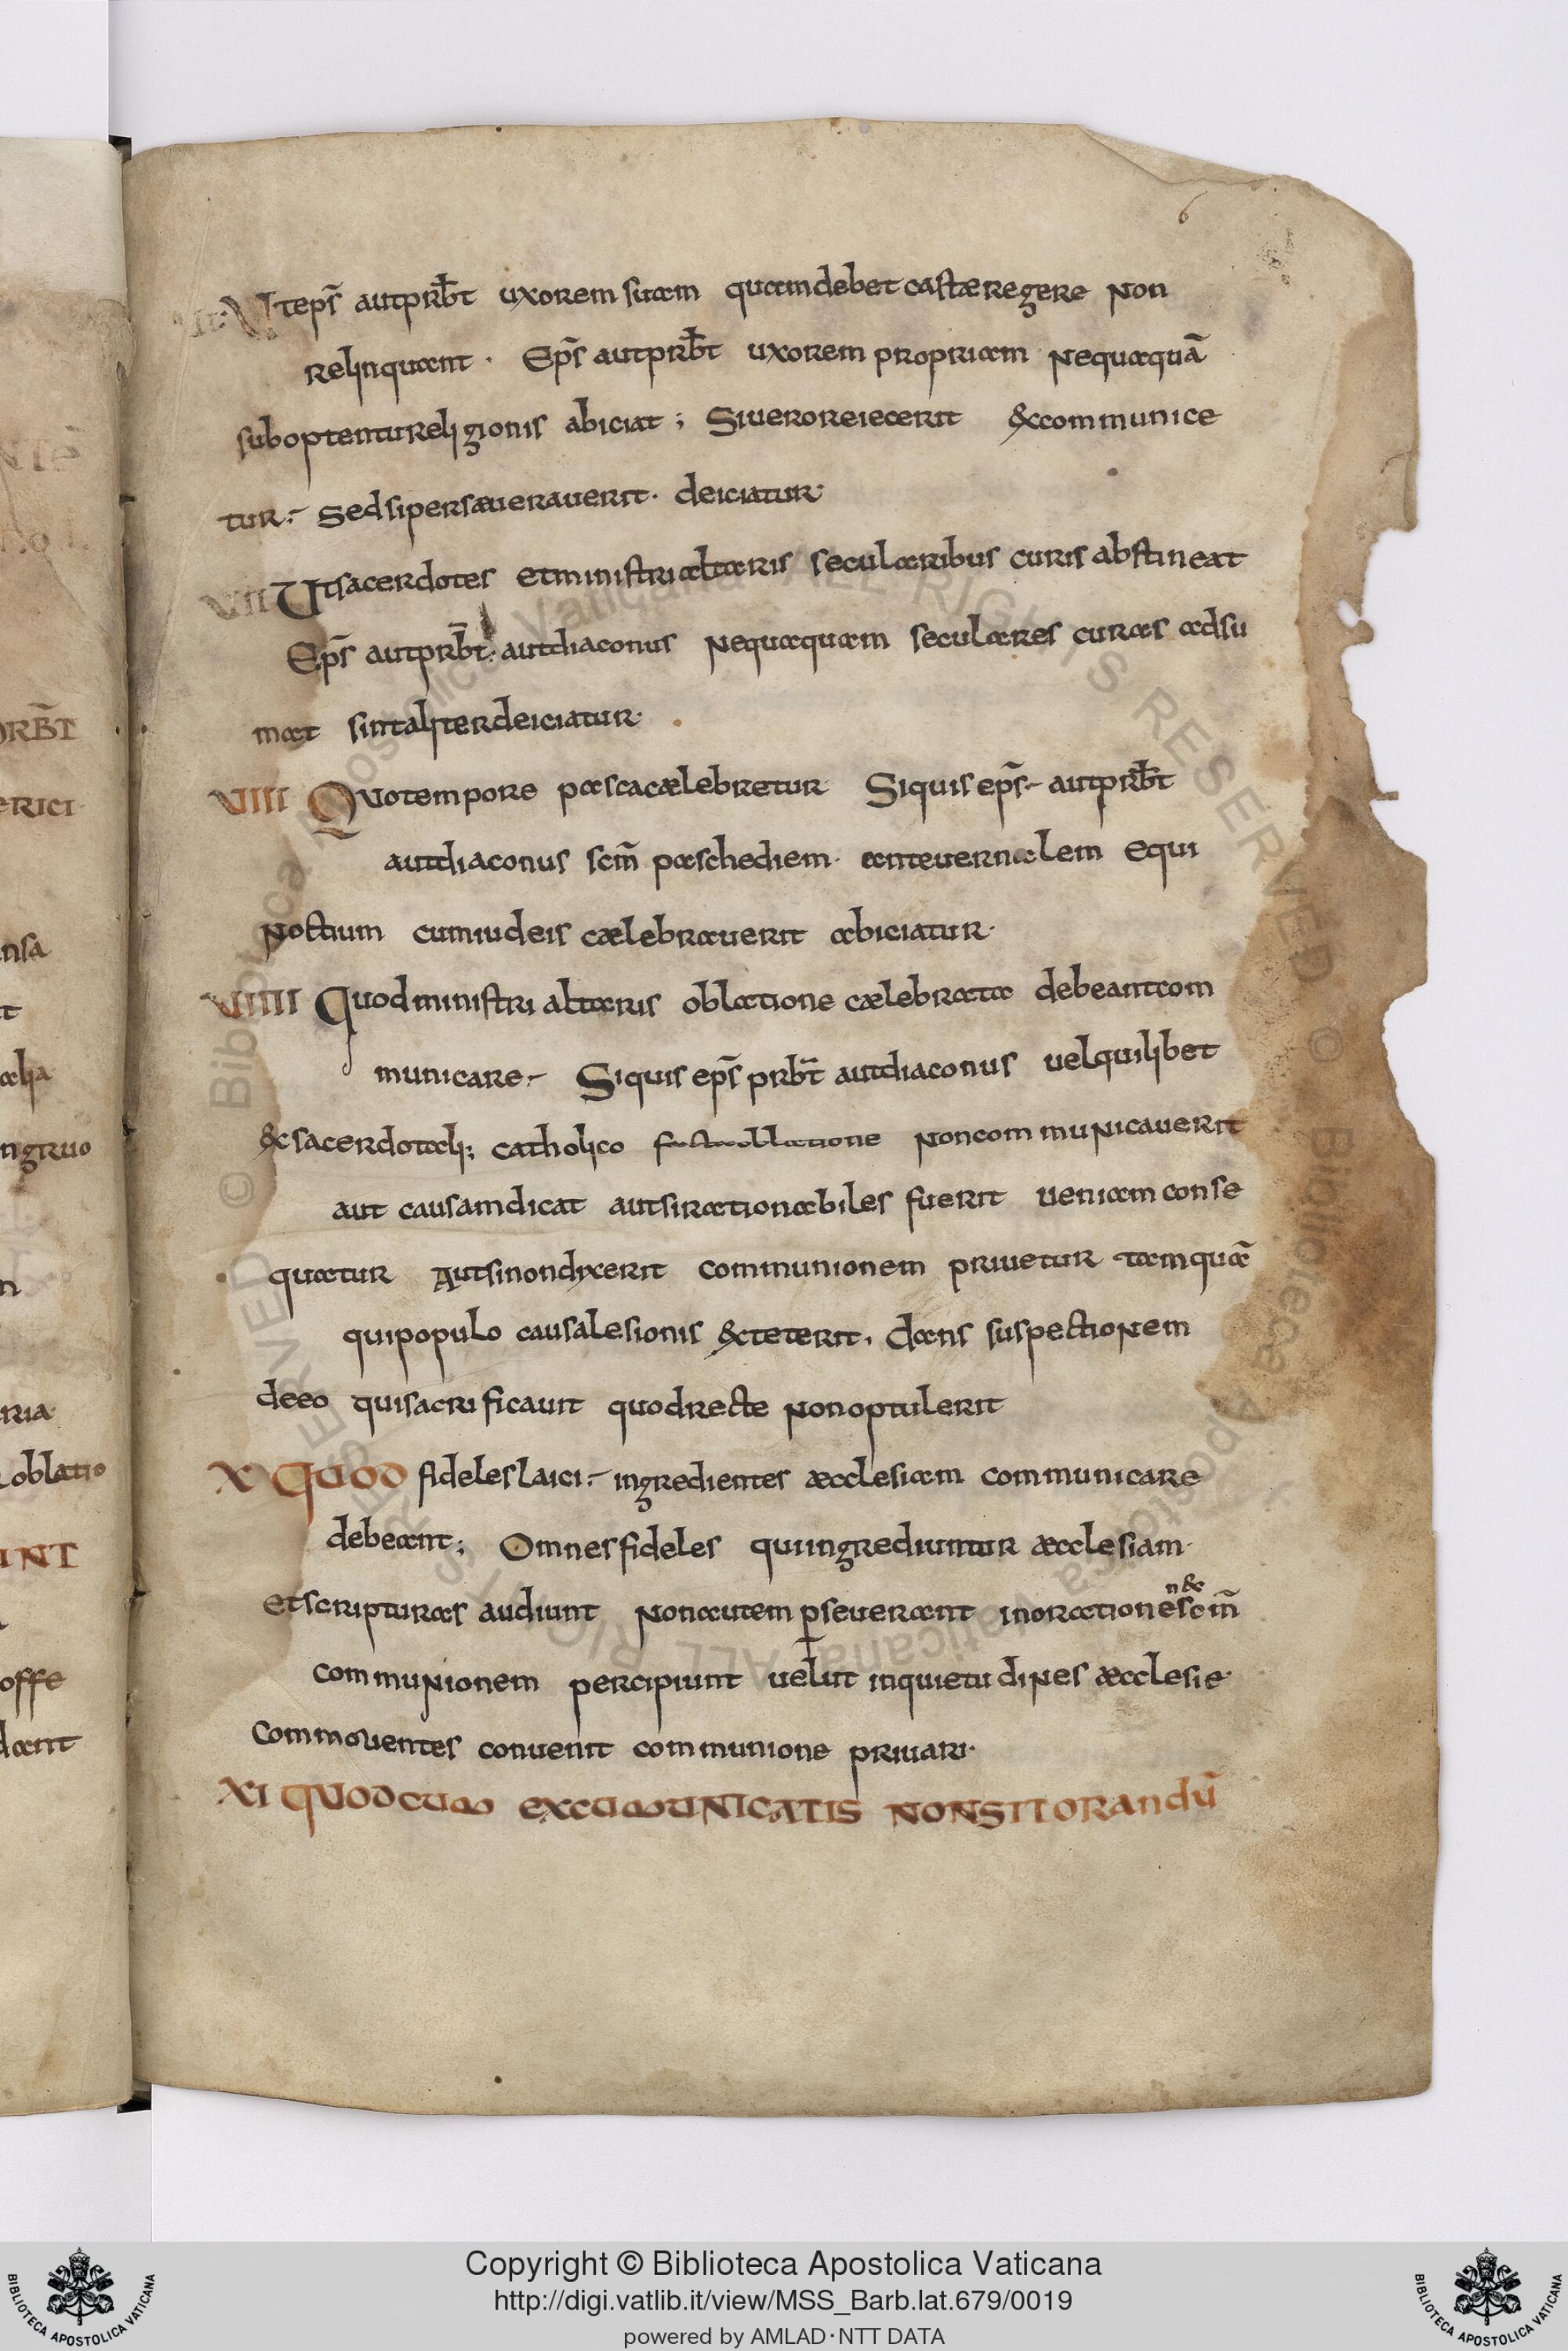 6
VII Ut ep̄s aut prb̄t uxorem suam quam debet castæ regere non
relinquant · Ep̄s aut prb̄t uxorem propriam nequaquā
sub optentu religionis abiciat ; Si uero reiecerit &communice
tur :- sed si persæuerauerit · deiciatur ·
VII Ut sacerdotes et ministri altaris secularibus curis abstineat
Ep̄s aut prb̄t · aut diaconus nequaquam seculares curas adsu
mat sin taliter deiciatur ·
VIII Quo tempore pasca cælebretur Si quis ep̄s - aut prb̄t
aut diaconus sc̄m paschediem · ante uernalem equi
noctium cum iudeis cælebrauerit abiciatur ·
VIIII Quod ministri altaris oblatione cælebrata debeant com
municare - Si quis ep̄s prb̄t aut diaconus uel quilibet
&sacerdotali ; catholico facta oblatione non communicauerit
aut causam dicat aut si rationabiles fuerit ueniam conse
quatur Aut si non dixerit communionem priuetur tamquā
qui populo causa lesionis &teterit , dans suspectionem
de eo qui sacrificauit quod recte non optulerit
X QUOD fideles laici :- ingredientes æcclesiam communicare
debeant ; Omnes fideles qui ingrediuntur æcclesiam ·
et scripturas audiunt non autem perseuerant in oratione sc̄m
n &
communionem percipiunt uelut inquietudines æcclesie ·
Commouentes conuenit communione priuari ·
XI QUOD CUM EXCUMUNICATIS NON SIT ORANDŪ
NTĒ
PRB̄T
ERICI
nsa
alia
ngruo
ria
oblatio
INT
offe
dant
© Biblioteca Apostolica Vaticana ALL RIGHTS RESERVED © Biblioteca Apostolica Vaticana ALL RIGHTS RESERVED
Copyright © Biblioteca Apostolica Vaticana
http://digi.vatlib.it/view/MSS_Barb.lat.679/0019
powered by AMLAD·NTT DATA
BIBLIOTECA APOSTOLICA VATICANA
BIBLIOTECA APOSTOLICA VATICANA